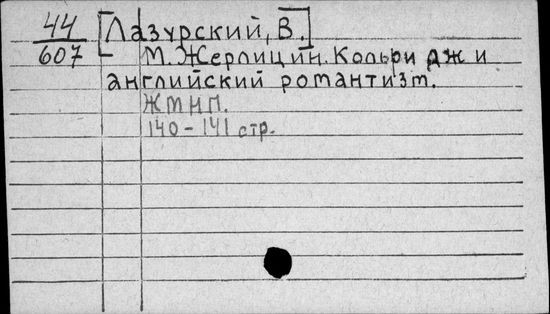 44
607
[Лазурский, В.]
М. Жерлицин. Кольридж и
английский романтизм.
ЖМНП.
140-141 стр.